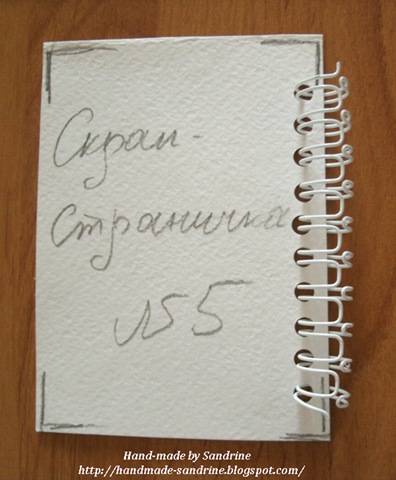 Скрап-
Страничка
№5
Hand-made by Sandrine
http://handmade-sandrine.blogspot.com/